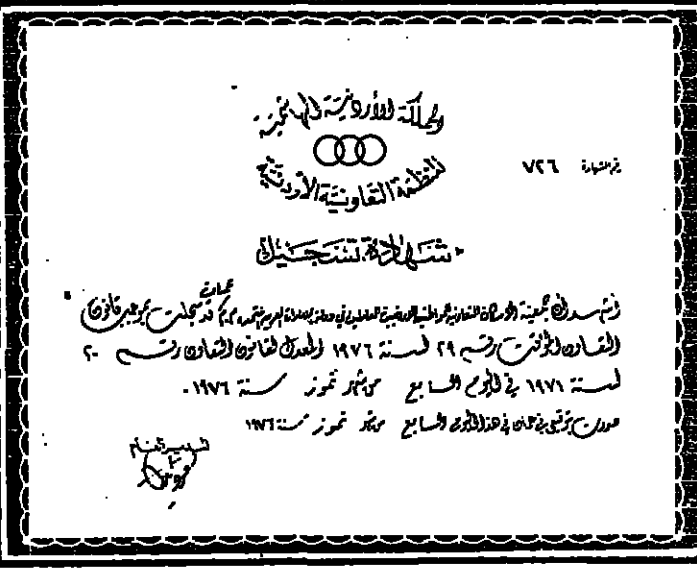 المملكة الأردنية الهاشمية
المنظمة التعاونية الأردنية
رقم الشهادة ٧٢٦
شهادة تسجيل
أشهد أن جمعية الإسكان التعاونية للمواطنين الأردنيين العاملين في دولة الإمارات العربية المتحدة م.م عمان قد سجلت بموجب قانون
التعاون المؤقت رقم ٢٩ لسنة ١٩٧٦ المعدل لقانون التعاون رقم ٢٠
لسنة ١٩٧١ في اليوم السابع من شهر تموز سنة ١٩٧٦.
صدرت بتوقيعي في عمان في هذا اليوم السابع من شهر تموز سنة ١٩٧٦
المدير العام